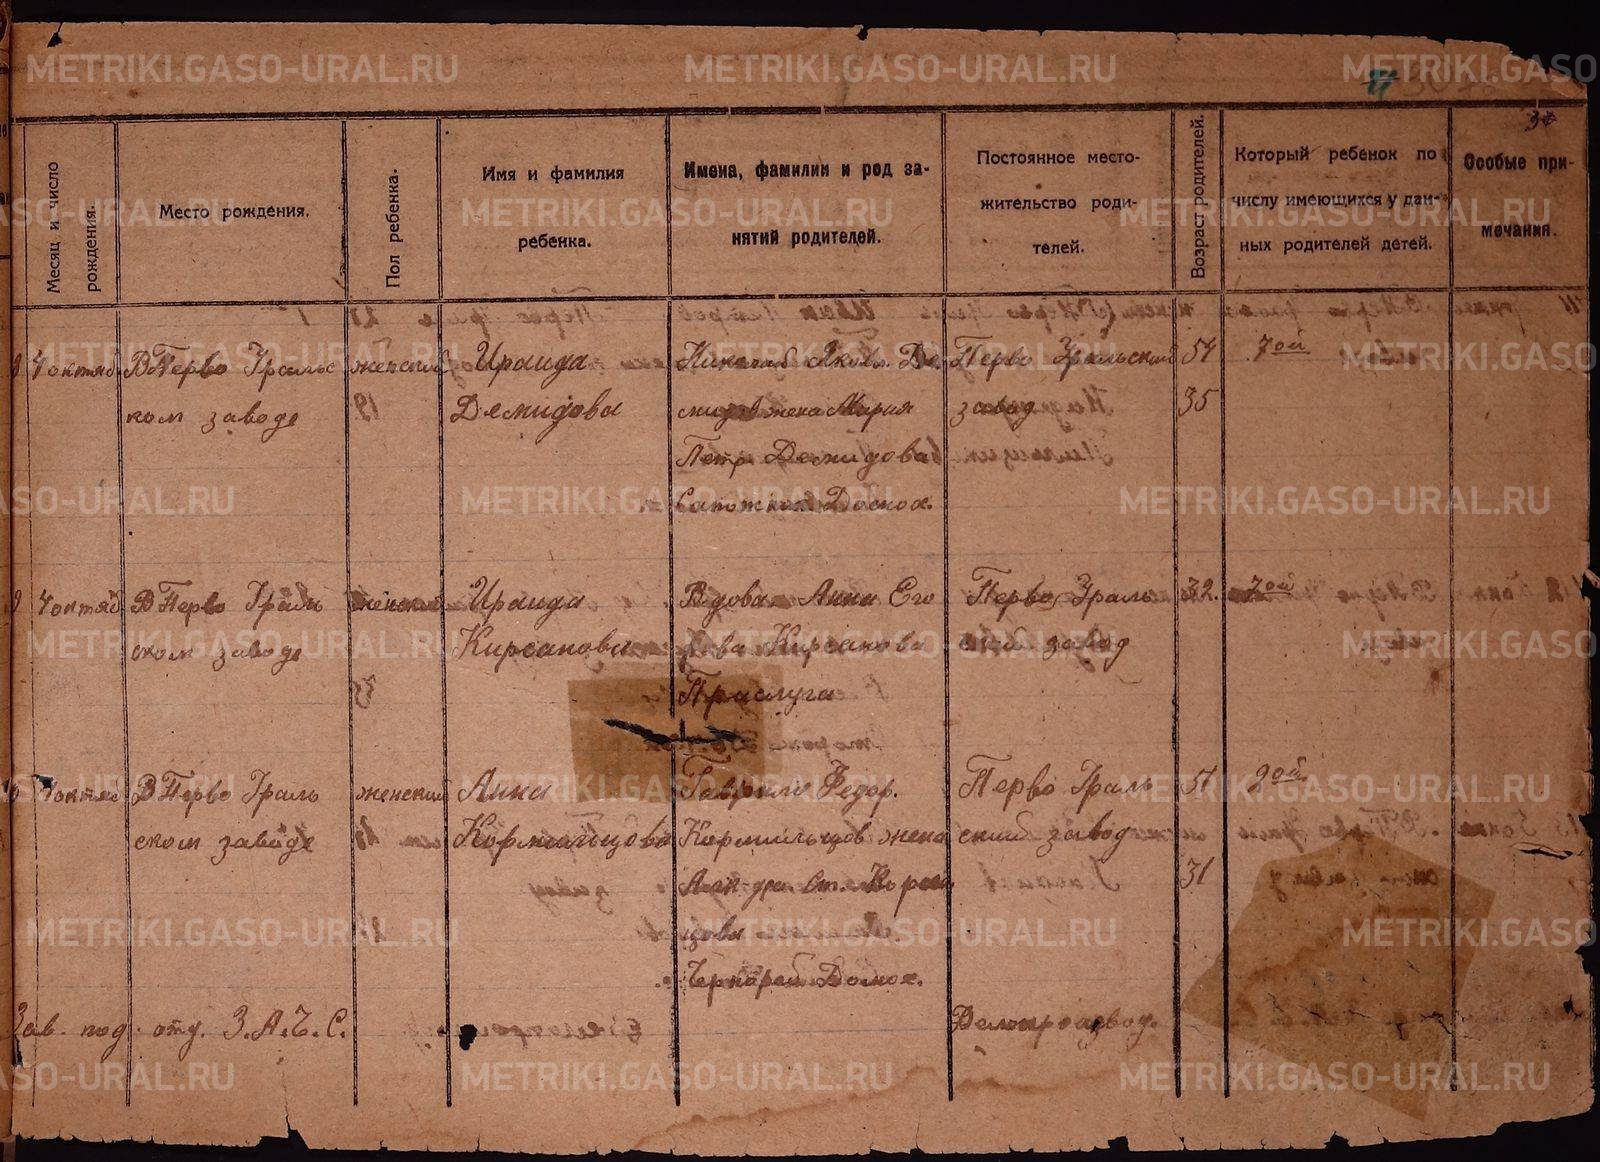 Месяц и число рождения.
Место рождения.
Пол ребенка.
Имя и фамилия
ребенка.
Имена, фамилии и род за-
нятий родителей.
Постоянное место-
жительство роди-
телей.
Возраст родителей.
Который ребенок по
числу имеющихся у дан-
ных родителей детей.
Особые при-
мечания.
4 октяб
В Перво Уральс
ком заводе
женский
Ираида
Демидова
Николай Яковл. Де-
мидов жена Мария
Петр. Демидова
Сапожник Домох.
Перво Уральский
завод
54
35
7ой
4 октяб
В Перво Ураль
ском заводе
женский
Ираида
Кирсанова
Вдова Анна Его
рова Кирсанова
Прислуга
Перво Ураль
ский завод
32.
7ой
4 октяб
В Перво Ураль
ском заводе
женский
Анна
Кормильцова
Гаврил Федор.
Кормильцов жена
Алек-дра Ст. Корми
цова
Домох.
Перво Ураль
ский завод
51
31
2ой
Зав. под. отд. З.А.Г.С.
Делопроизвод.
METRIKI.GASO-URAL.RU